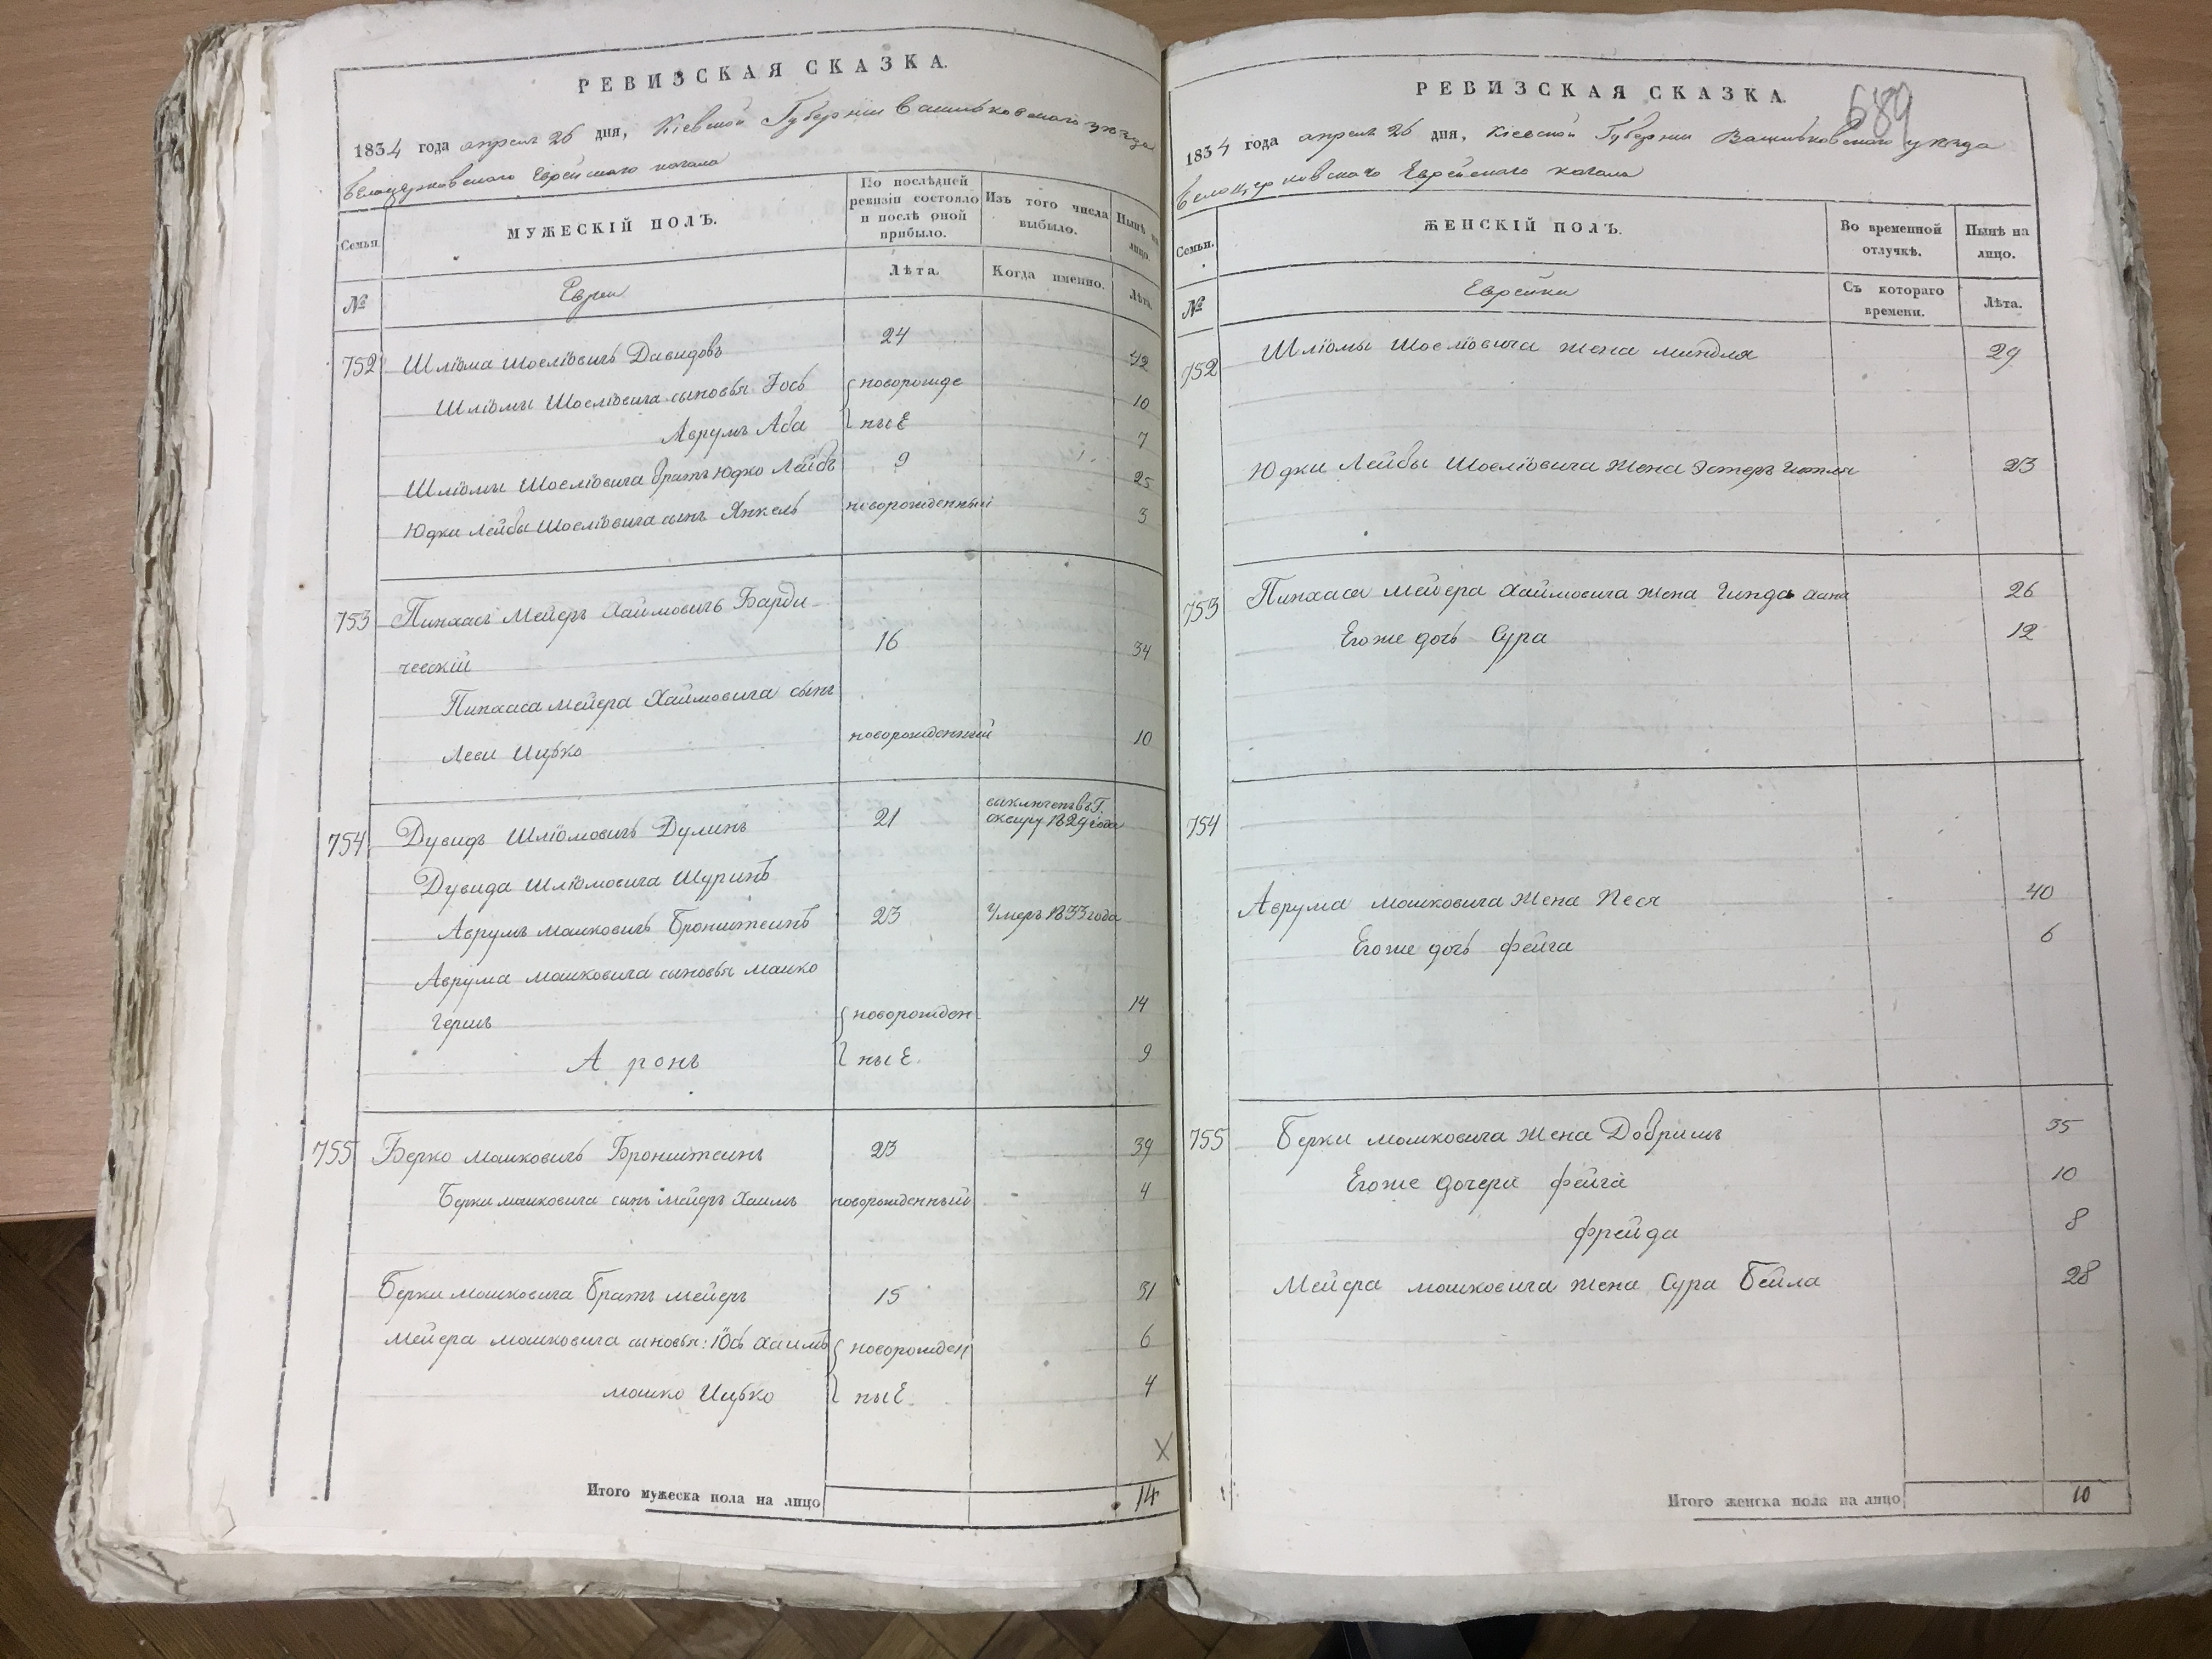 РЕВИЗСКАЯ СКАЗКА.
1834 года апреля 26 дня, Кіевской Губерніи Васильковского уезда
Белоцерковского Еврейского кагала
Семьи.
МУЖЕСКІЙ ПОЛЪ.
По послѣдней ревизіи состояло и послѣ оной прибыло.
Изъ того числа выбыло.
Нынѣ на лицо.
№
Евреи
Лѣта.
Когда именно.
Лѣта.
752 Шліома Шосліовичъ Давидовъ 24 42
Шліомы Шосліовича сыновья Іось { новорожде 10
Аврумъ Аба { ныЕ 7
Шліомы Шосліовича братъ Юдко Лейбъ 9 25
Юдки Лейбы Шосліовича сынъ Янкель новорожденный 3
753 Пинхасъ Мейеръ Хаймовичъ Барди-
ческій 16 34
Пинхаса Мейера Хаймовича сынъ
Леви Ицко новорожденный 10
754 Дувидъ Шліомовичъ Дулинъ 21 1829 года
Дувида Шліомовича Шуринъ
Аврумъ Мошковичъ Бронштеинъ 23 Умеръ 1833 года
Аврума Мошковича сыновья Мошко
Гершъ { новорожден 14
Аронъ { ныЕ. 9
755 Берко Мошковичъ Бронштеинъ 23 39
Берки Мошковича сынъ Мейеръ Хаимъ новорожденный 4
Берки Мошковича братъ Мейеръ 15 31
Мейера Мошковича сыновья: Іось Хаимъ { новорожден 6
Мошко Ицко { ныЕ. 4
X
Итого мужеска пола на лицо 14
РЕВИЗСКАЯ СКАЗКА.
689
1834 года апреля 26 дня, Кіевской Губерніи Васильковского уезда
Белоцерковского Еврейского кагала
Семьи.
ЖЕНСКІЙ ПОЛЪ.
Во временной отлучкѣ.
Нынѣ на лицо.
№
Еврейки
Съ котораго времени.
Лѣта.
752 Шліомы Шосліовича жена Миндля 29
Юдки Лейбы Шосліовича жена Эстеръ 23
753 Пинхаса Мейера Хаймовича жена Гинда Хана 26
Егоже дочь Сура 12
754
Аврума Мошковича жена Песя 40
Егоже дочь Фейга 6
755 Берки Мошковича жена Добришъ 35
Егоже дочера Фейга 10
Фрейда 8
Мейера Мошковича жена Сура Бейла 28
Итого женска пола на лицо 10